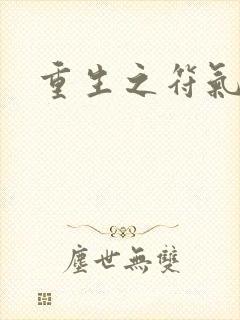 重生之符氣
塵世無雙